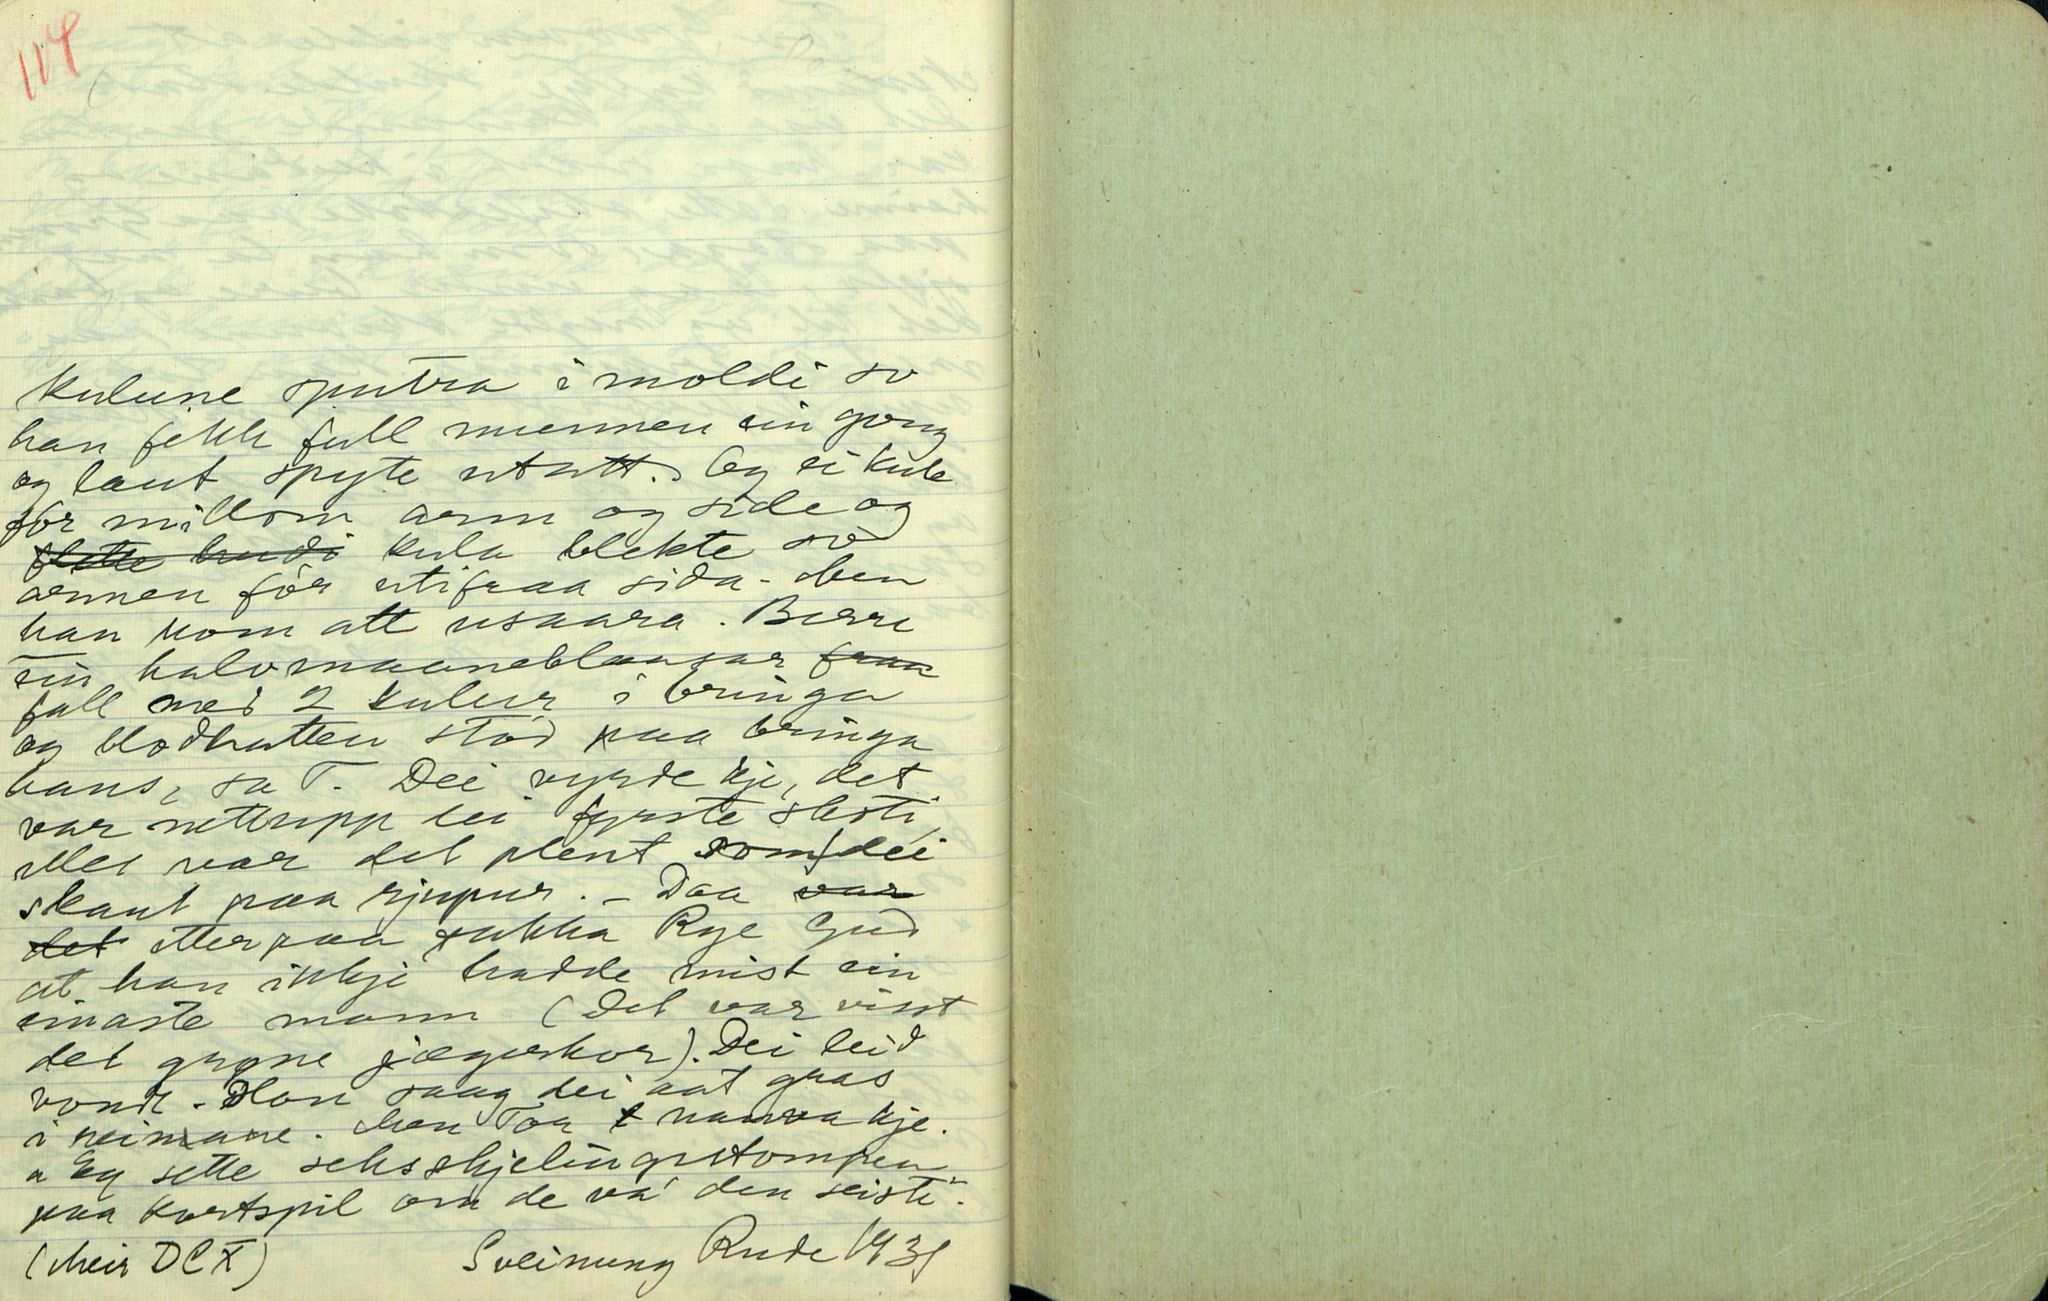 114
Kulune sputra i moldi so
han fekk full munnen ein gong
og laut spyte utatt. Og ei kule
for millom arm og side og
flette hudi kula blekte so
armen fór utifraa sida. Men
han kom att usaara. Berre
ein halvmaaneblaasar fraa
fall med 2 kulur i bringa
og blodhatten stod paa bringa
hans, sa T. Dei vyrde kje, det
var nettupp lei fyrste skoti,
elles var det plent som dei
skaut paa rjupur. – Daa var
det etterpaa takka Rye Gud
at han ikkje hadde mist ein
einaste mann (Det var visst
det grøne jægerkor). Dei leid
vondt. Han saag dei aat gras
i reinane. Men Tor t naava kje.
"Eg sette seksskjelingstompen
paa kortspil om de va' den seiste".
(Meir DCX) Sveinung Rude 1939